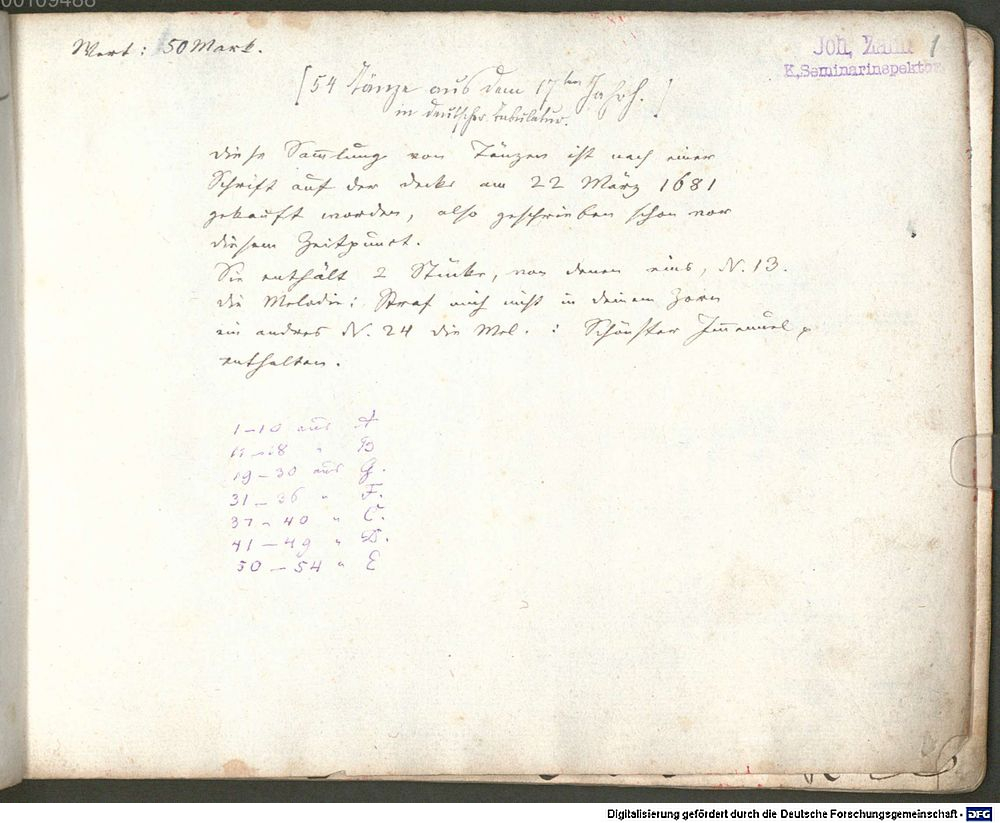 00109488
Wert: 50 Mark.
Joh. Zahn
1
K. Seminarinspektor
[54 Tänze aus dem 17ten Jahrh.]
in deutscher Tabulatur.
Diese Sammlung von Tänzen ist nach einer
Schrift auf der Decke am 22 März 1681
gekauft worden, also geschrieben schon vor
diesem Zeitpunct.
Sie enthält 2 Stücke, von denen eins, N. 13.
die Melodie: Straf mich nicht in deinem Zorn
ein andres N. 24 die Mel. : Schönster Immanuel
enthalten.
1-10 aus A
11-18 " B
19-30 aus G.
31-36 " F.
37-40 " C.
41-49 " D.
50-54 " E
Digitalisierung gefördert durch die Deutsche Forschungsgemeinschaft - DFG